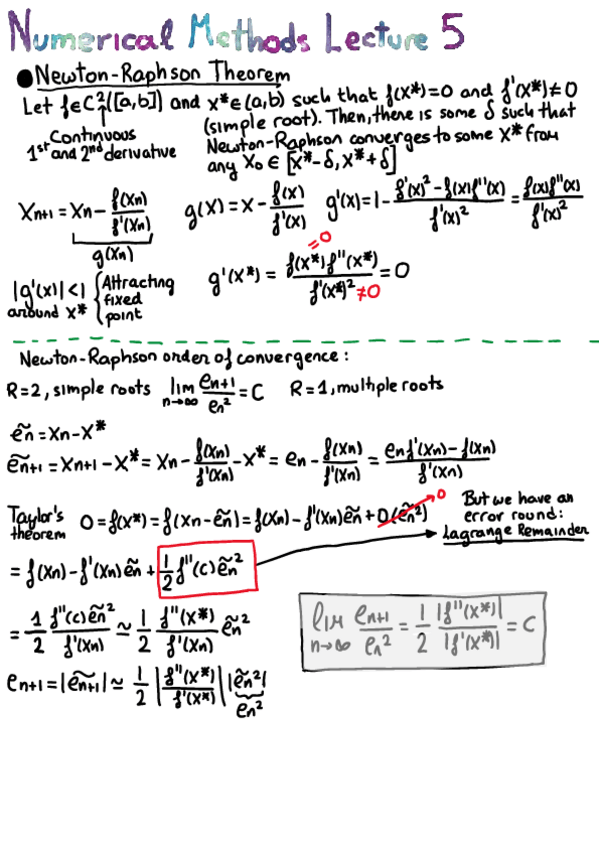 Numerical Methods Lecture 5
● Newton-Raphson Theorem
Let f∈C²([a,b]) and x*∈(a,b) such that f(x*)=0 and f'(x*)≠0
(simple root). Then, there is some δ such that
Continuous
1st and 2nd derivative
Newton-Raphson converges to some x* from
any x₀ ∈ [x*-δ, x*+δ]
Xn+1 = Xn - f(Xn)/f'(Xn)
g(Xn)
g(x) = x - f(x)/f'(x)
g'(x) = 1 - (f'(x)² - f(x)f''(x))/f'(x)² = f(x)f''(x)/f'(x)²
=0
g'(x*) = f(x*)f''(x*)/f'(x*)² = 0
≠0
|g'(x)| < 1
around x*
{ Attracting
fixed
point
Newton-Raphson order of convergence:
R=2, simple roots lim n→∞ en+1/en² = C R=1, multiple roots
ẽn = Xn - X*
ẽn+1 = Xn+1 - X* = Xn - f(Xn)/f'(Xn) - X* = en - f(Xn)/f'(Xn) = (en f'(Xn) - f(Xn))/f'(Xn)
Taylor's
theorem
0 = f(x*) = f(Xn - ẽn) = f(Xn) - f'(Xn)ẽn + O(ẽn²) 0
But we have an
error round:
Lagrange Remainder
= f(Xn) - f'(Xn)ẽn + 1/2 f''(c)ẽn²
= 1/2 f''(c)ẽn²/f'(Xn) ≃ 1/2 f''(x*)/f'(Xn) ẽn²
lim n→∞ en+1/en² = 1/2 |f''(x*)|/|f'(x*)| = C
en+1 = |ẽn+1| ≃ 1/2 |f''(x*)/f'(x*)| |ẽn²|
en²